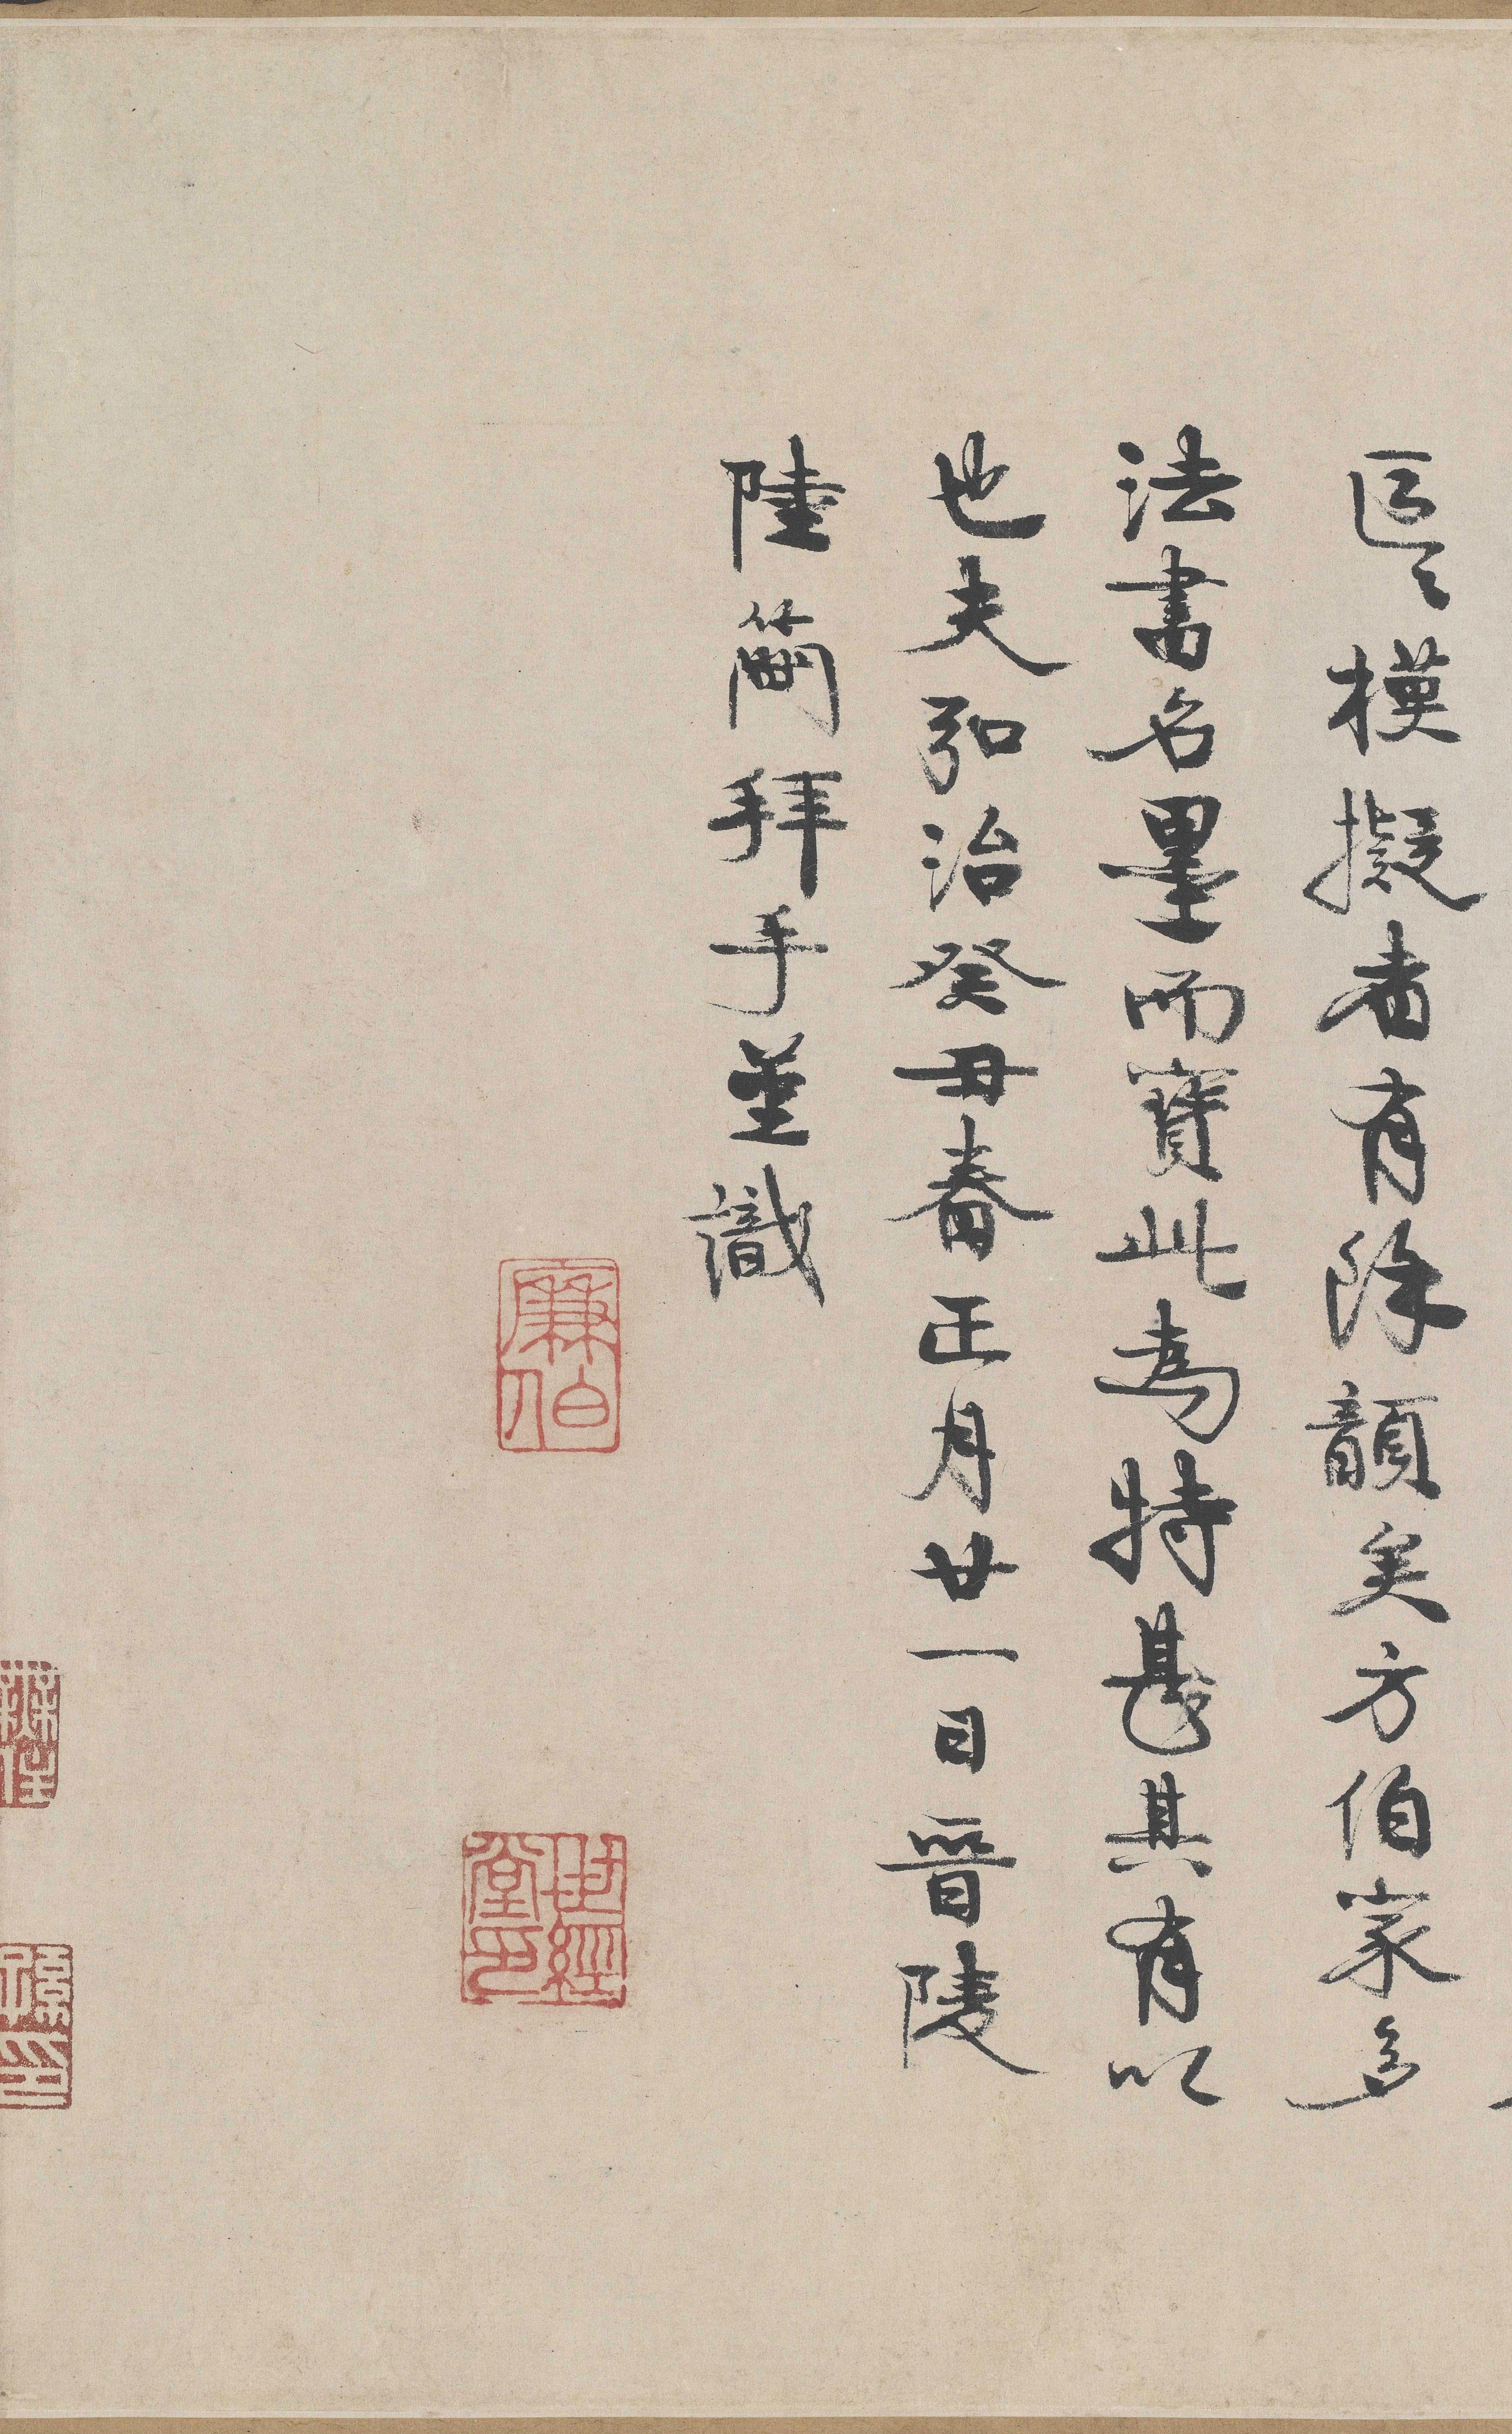 區〻模擬者有餘韻矣方伯家多
法書名墨而寶此為特甚其有以
也夫弘治癸丑春正月廿一日晉陵
陸簡拜手並識
廉伯
世經堂印